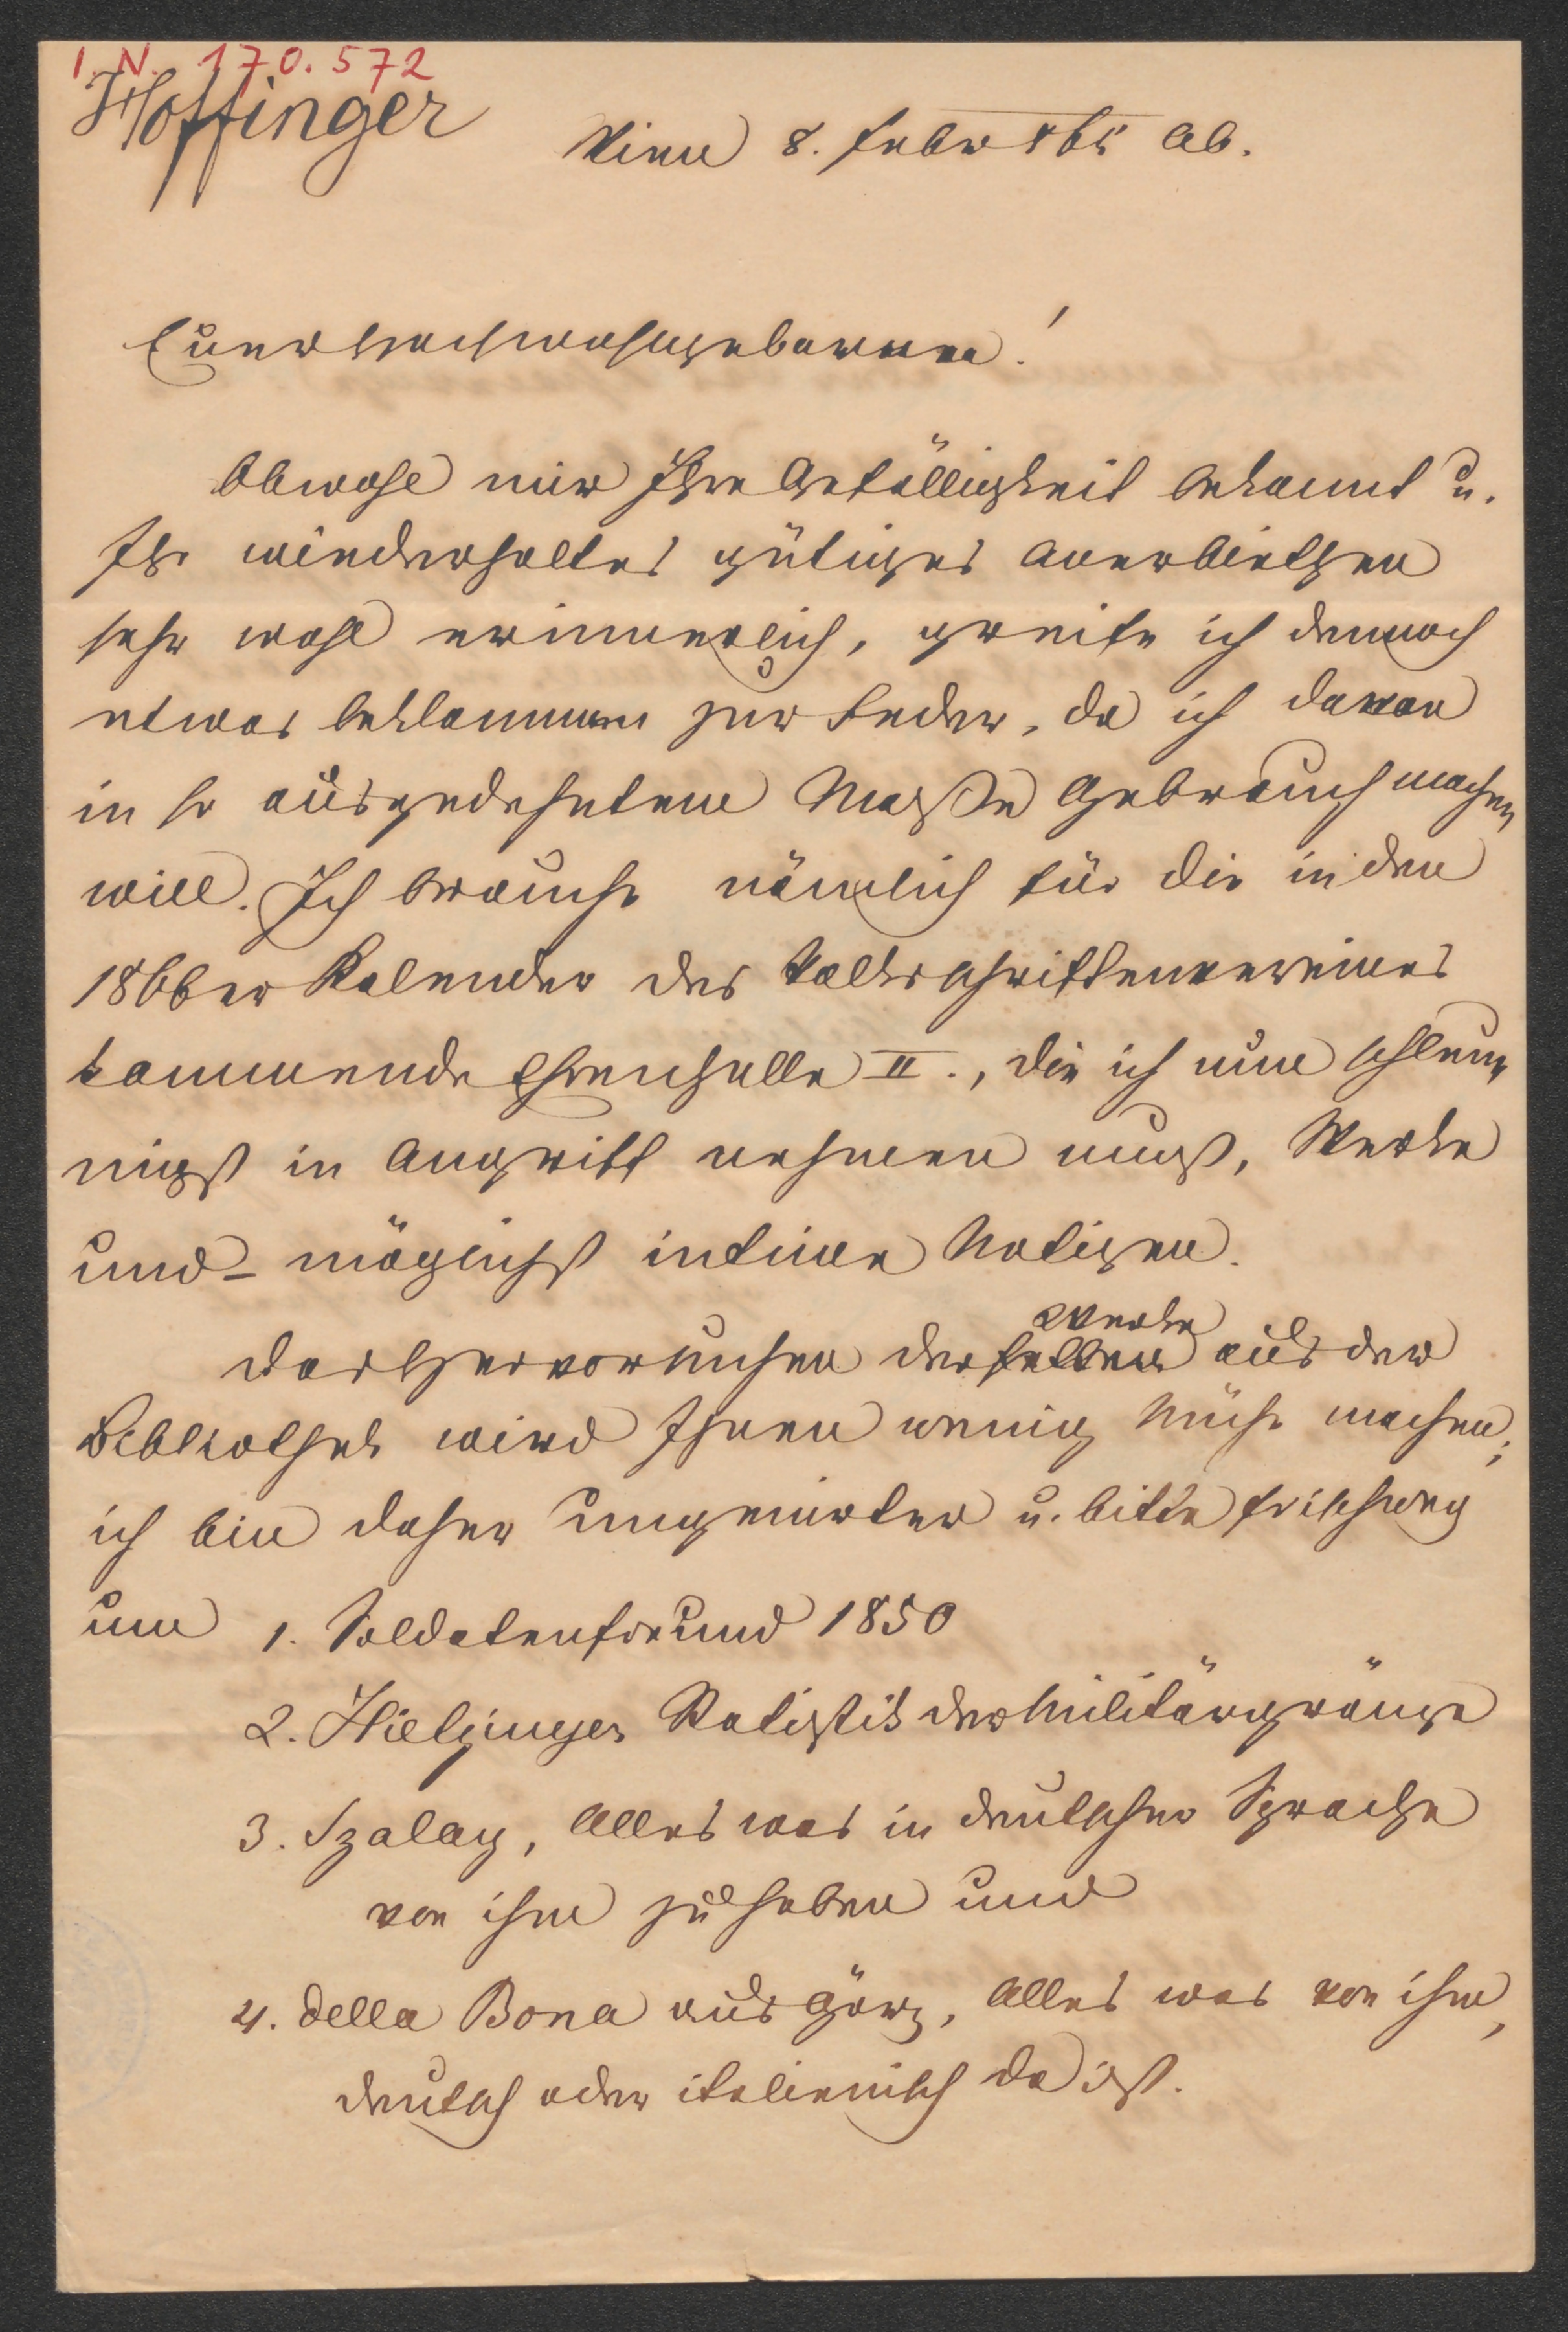 I. N. 170.572
Hoffinger
Wien 8. Febr 865 Ab.
Euer Hochwohlgeboren!
Obwohl mir Ihre Gefälligkeit bekannt u.
Ihr wiederholtes gütiges Anerbiethen
sehr wohl erinnerlich, greife ich dennoch
etwas beklommen zur Feder, da ich davon
in so ausgedehntem Maße Gebrauch machen
will. Ich brauche nämlich für die in den
1866er Kalender des Volksschriftenvereines
kommende Ehrenhalle II., die ich nun schleu-
nigst in Angriff nehmen muß, Werke
und – möglichst intime Notizen.
Das Hervorsuchen der Werke aus der
Bibliothek wird Ihnen wenig Mühe machen;
ich bin daher ungenirter u. bitte frischweg
um 1. Soldatenfreund 1850
2. Hietzinger Statistik der Militärgränze
3. Szalay, Alles was in deutscher Sprache
von ihm zu haben und
4. della Bona aus Görz, Alles was von ihm,
deutsch oder italienisch da ist.